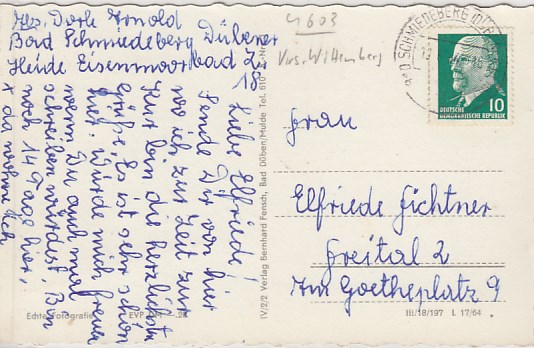 Abs. Dorle Arnold
Bad Schmiedeberg Dübener
Heide Eisenmoorbad Z.
182
4603
Krs. Wittenberg
SCHMIEDEBERG
DEUTSCHE
DEMOKRATISCHE REPUBLIK
10
Liebe Elfriede!
Sende Dir von hier
wo ich zur Zeit zur
Kur bin die herzlichsten
Grüße. Es ist sehr schön
hier. Würde mich freuen
wenn Du auch mal
schreiben würdest. Bin
noch 14 Tage hier,
x da wohne ich
Frau
Elfriede Fichtner
Freital 2
Am Goetheplatz 9
IV/2/2 Verlag Bernhard Fensch, Bad Düben/Mulde Tel. 610
Echte Fotografie
EVP DM -.20
III/18/197 L 17/64